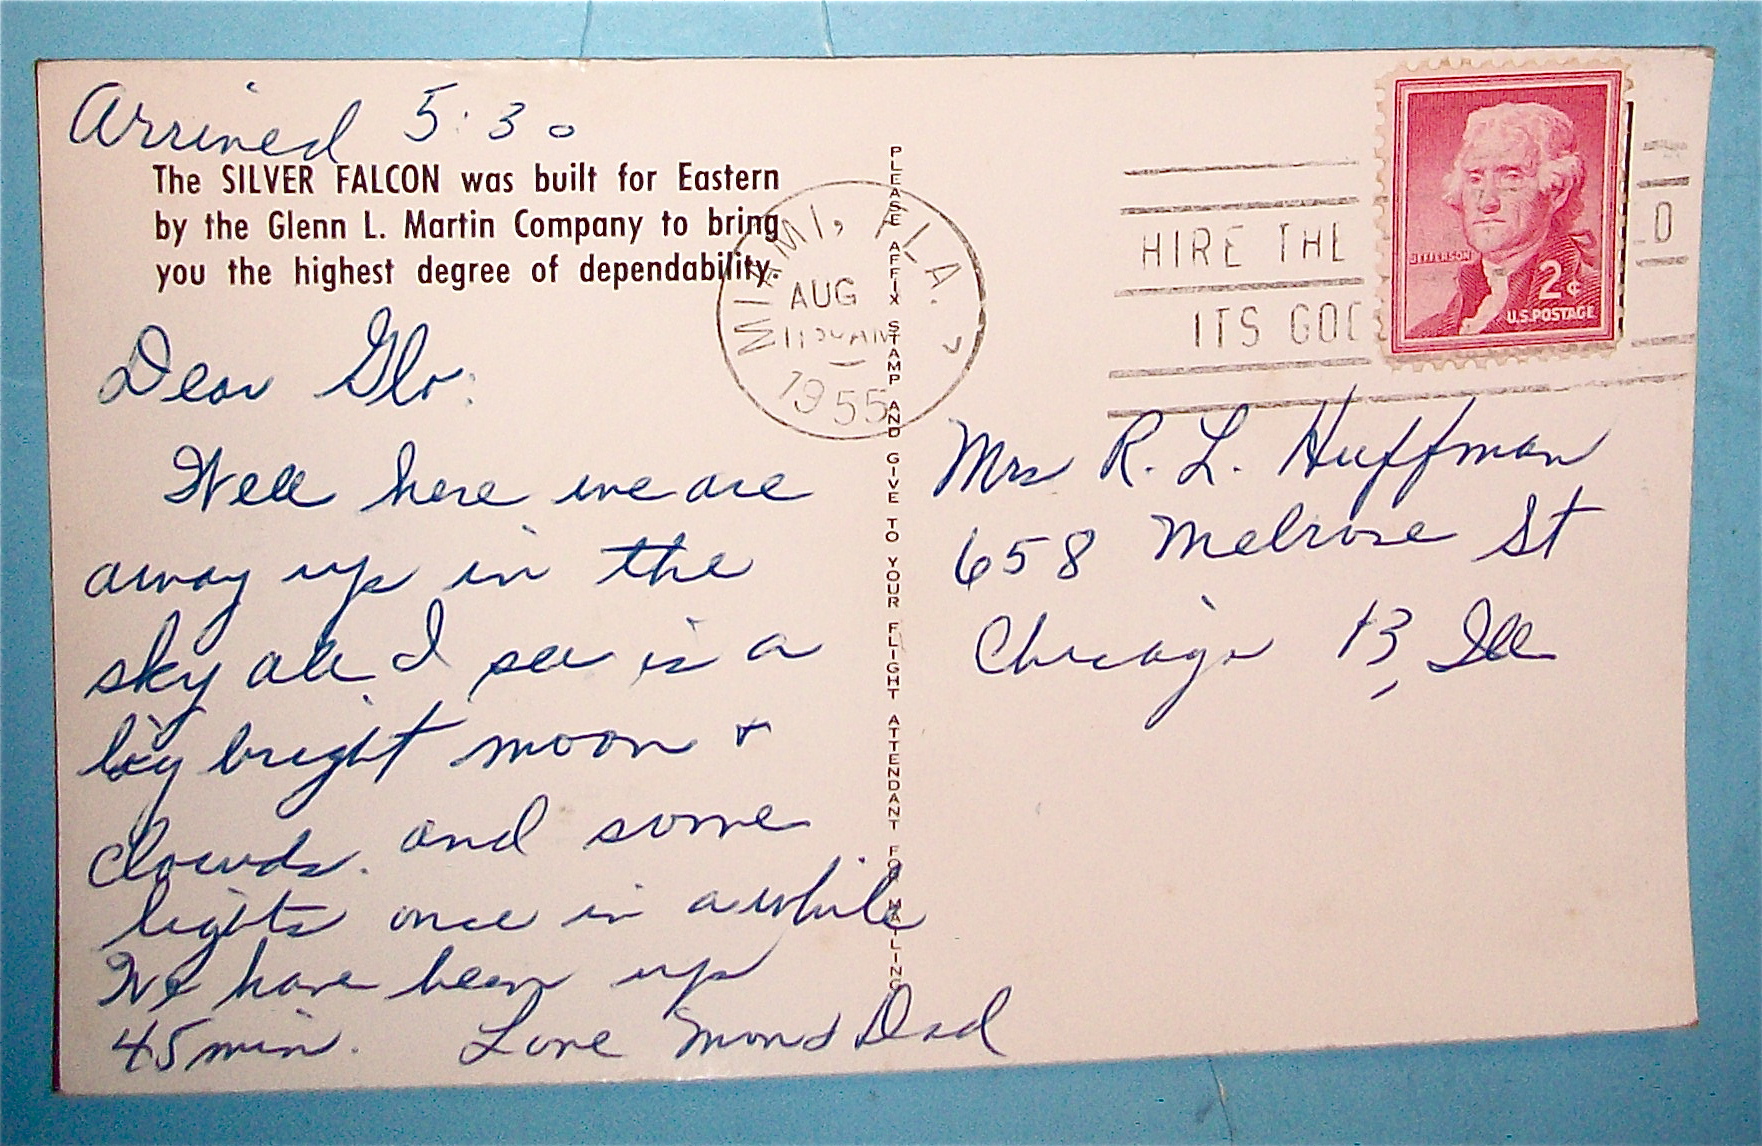 Arrived 5:30
The SILVER FALCON was built for Eastern
by the Glenn L. Martin Company to bring
you the highest degree of dependability.
Dear Glo:
Well here we are
away up in the
sky all I see is a
big bright moon +
clouds. and some
lights once in a while
We have been up
45 min. Love Mom & Dad
PLEASE AFFIX STAMP AND GIVE TO YOUR FLIGHT ATTENDANT FOR MAILING
MIAMI, FLA.
AUG
1955
HIRE THE
ITS GOO
JEFFERSON
2¢
U.S. POSTAGE
Mrs R. L. Huffman
658 Melrose St
Chicago 13, Ill